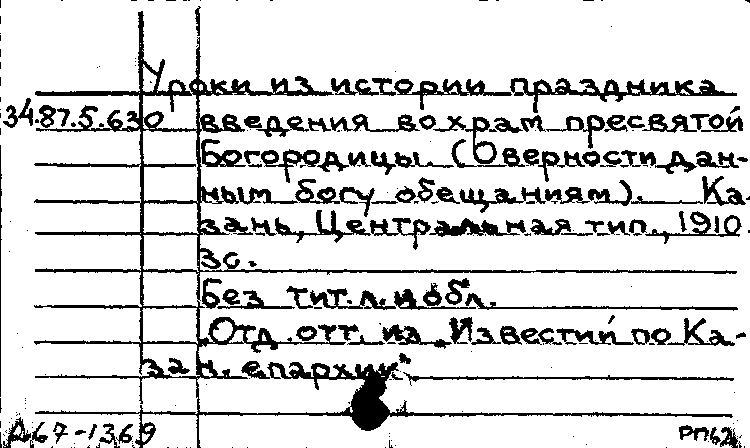 Уроки из истории праздника
34.87.5.630 введения во храм пресвятой
Богородицы. (О верности дан-
ным богу обещаниям). Ка-
зань, Центральная тип., 1910.
3с.
Без тит. л. и обл.
"Отд. отт. из "Известий по Ка-
зан. епархии".
Д67-1369 РП62